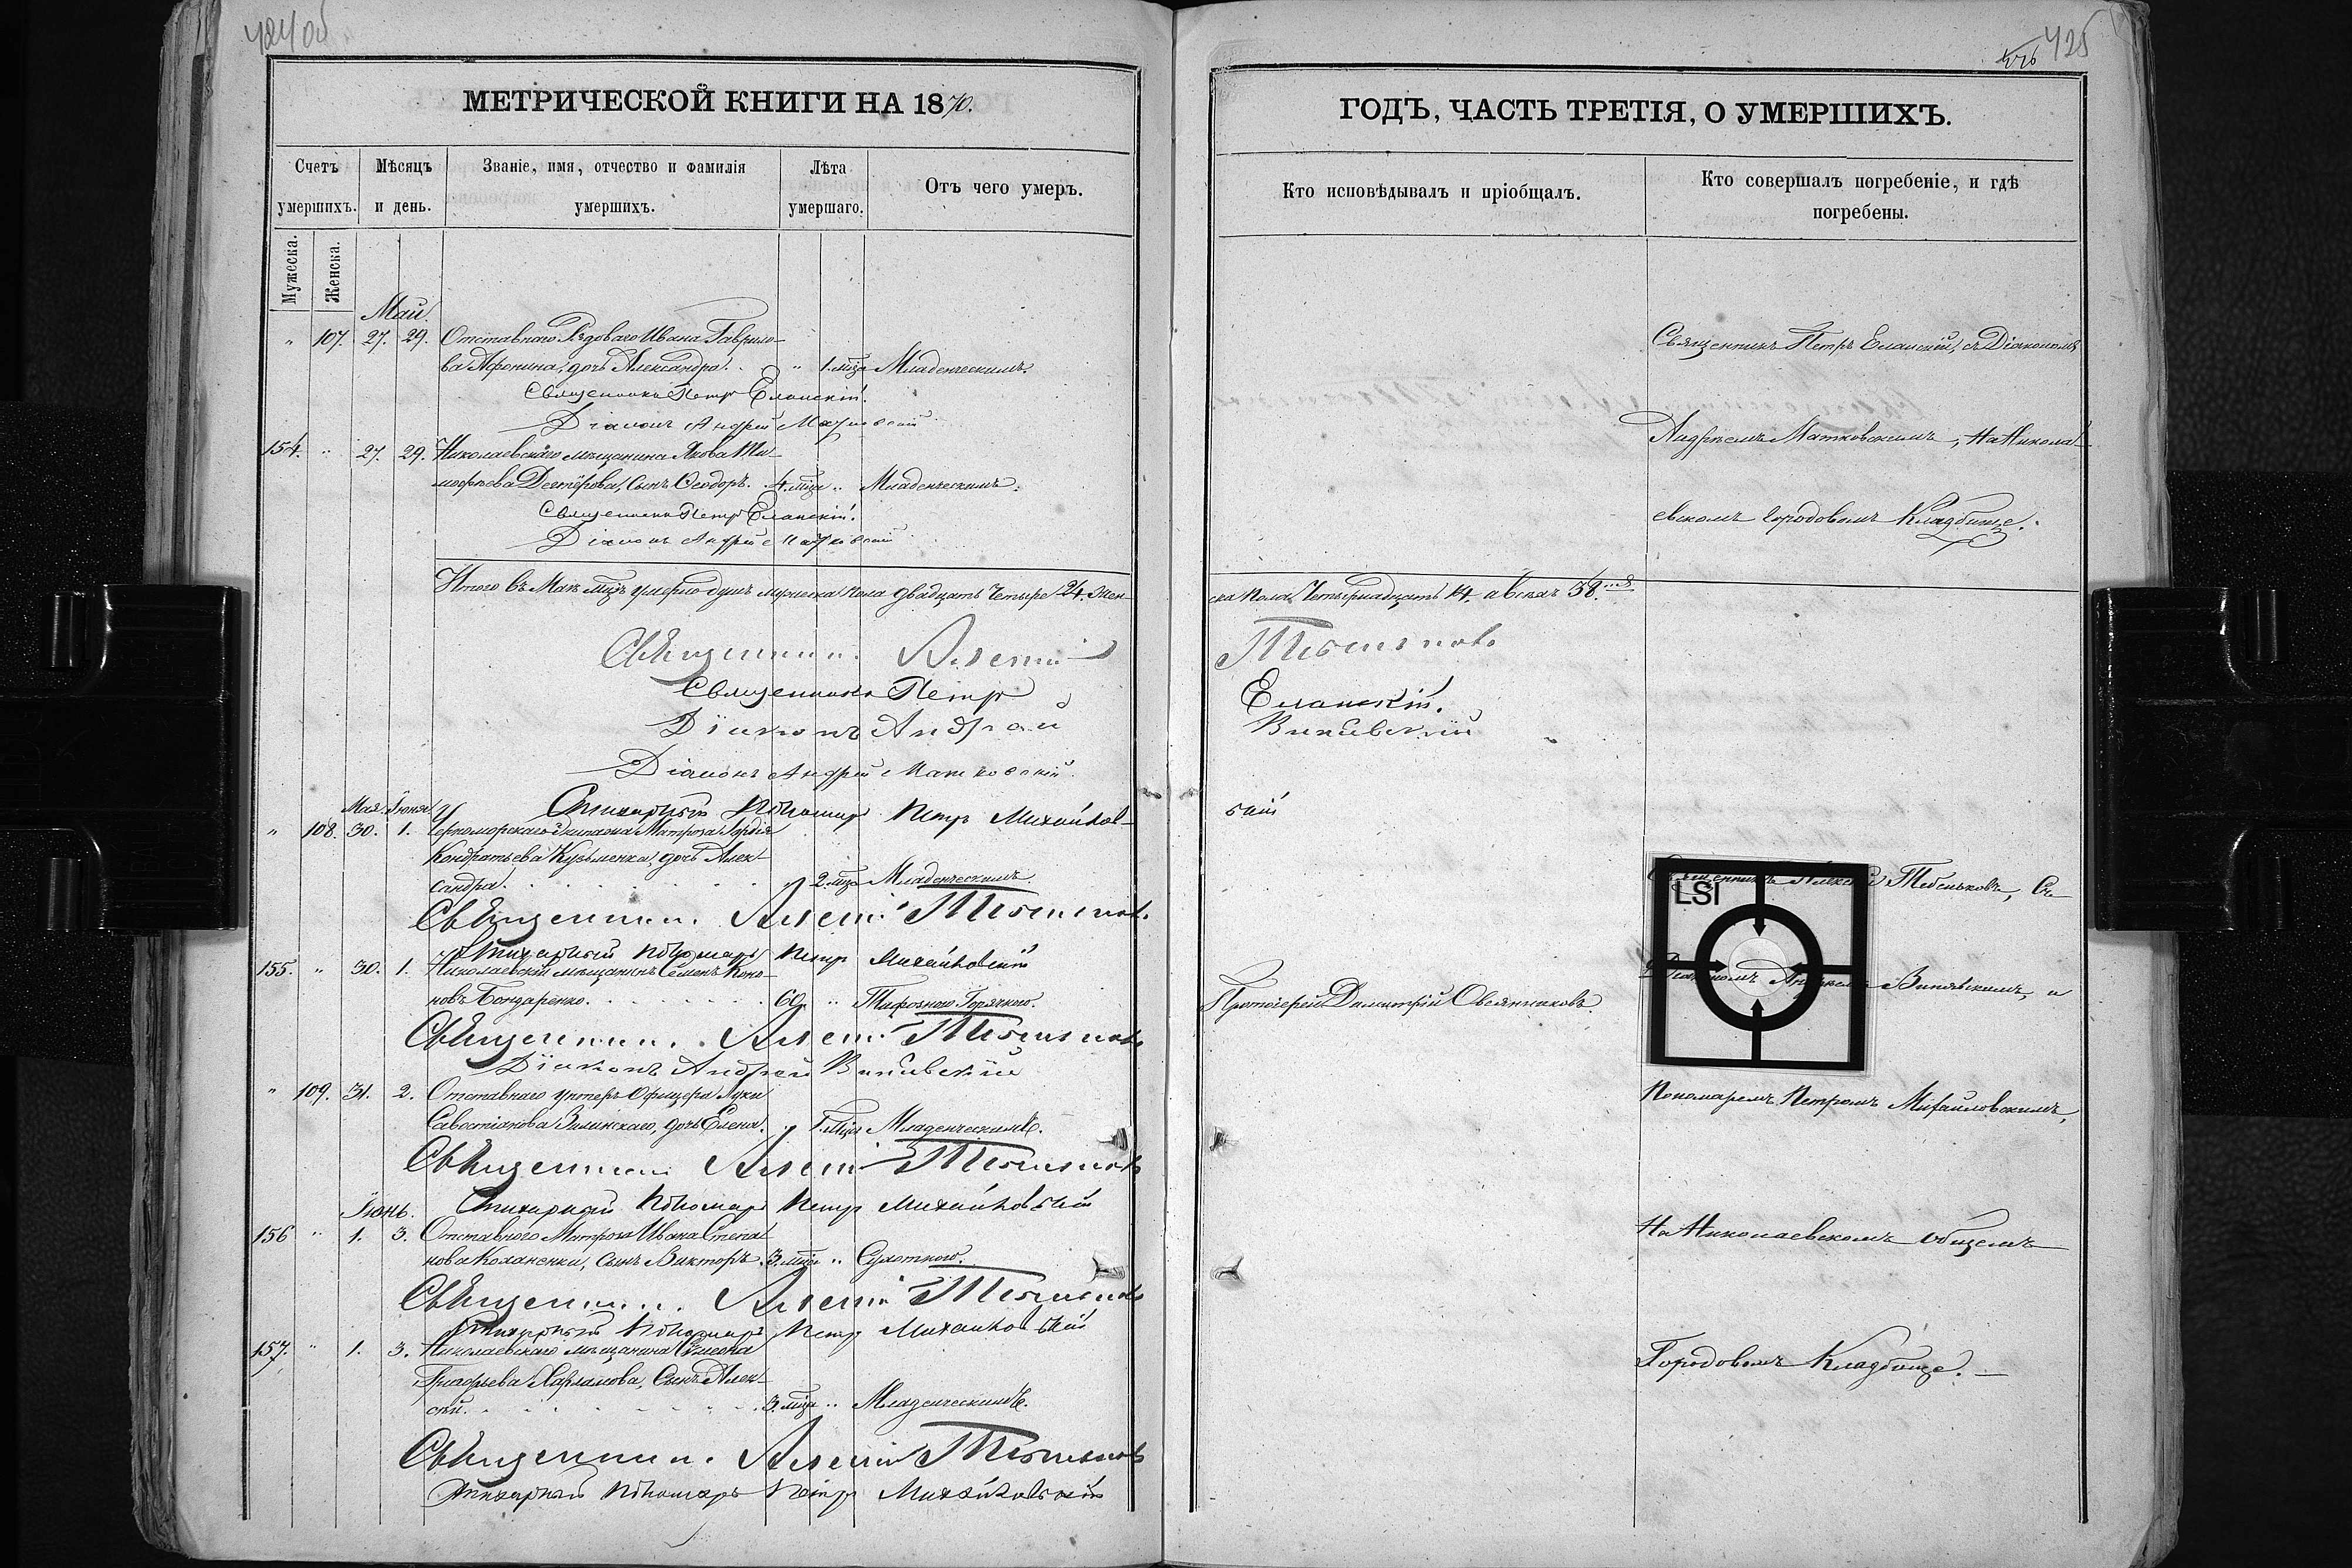 424 об
МЕТРИЧЕСКОЙ КНИГИ НА 1870.
Счетъ умершихъ.
Мѣсяцъ и день.
Званіе, имя, отчество и фамилія умершихъ.
Лѣта умершаго.
Отъ чего умеръ.
Мужеска.
Женска.
Май.
" 107. 27. 29. Отставнаго Рядоваго Ивана Гаврило-
ва Афонина, дочь Александра. " 1. мца Младенческимъ.
Священникъ Петръ Еланскій.
Діаконъ Андрей Матковскій
154. " 27. 29. Николаевскаго мѣщанина Якова Ти-
мофѣева Дегтёрова, Сынъ Ѳеодоръ. 4. мца " Младенческимъ.
Священникъ Петръ Еланскій.
Діаконъ Андрей Матковскій
Итого въ Маѣ мцѣ умерло душъ мужеска пола двадцать Четыре 24. Жен-
Священникъ Алексій
Священникъ Петръ
Діаконъ Андрей
Діаконъ Андрей Матковскій.
Стихарный Пономарь Петръ Михайлов-
Мая. Іюня.
" 108. 30. 1. Черноморскаго Экипажа Матроса Гордія
Кондратьева Кузьменка, дочь Алек-
сандра. 2. мца Младенческимъ.
Священникъ Алексій Тебеньковъ.
Стихарный Пономарь Петръ Михайловскій
155. " 30. 1. Николаевскій мѣщанинъ Семенъ Коно-
новъ Бондаренко. 60. " Тифозною Горячкою.
Священникъ Алексій Тебеньковъ
Діаконъ Андрей
" 109. 31. 2. Отставнаго унтеръ Офицера Луки
Савостіанова Зилинскаго, дочь Елена. " 1. мца Младенческимъ.
Священникъ Алексій Тебеньковъ
Стихарный Пономарь Петръ Михайловскій
Іюнь.
156 " 1. 3. Отставнаго Матроса Ивана Степа-
нова Коханенки, Сынъ Викторъ. 3. мца " Сухоткою.
Священникъ Алексій Тебеньковъ
Стихарный Пономарь Петръ Михайловскій
157. " 1. 3. Николаевскаго мѣщанина Симеона
Харламова, Сынъ Алек-
сѣй. 3. мца " Младенческимъ.
Священникъ Алексій Тебеньковъ
Стихарный Пономарь Петръ Михайловскій
425
ГОДЪ, ЧАСТЬ ТРЕТІЯ, О УМЕРШИХЪ.
Кто исповѣдывалъ и пріобщалъ.
Кто совершалъ погребеніе, и гдѣ погребены.
Священникъ Петръ Еланскій, съ Діакономъ
Андреемъ Матковскимъ, На Никола-
евскомъ городовомъ Кладбище.
ска пола Четырнадцать 14. а всехъ 38.
Тебеньковъ
Еланскій.
скій
Священникъ Алексій Тебеньковъ, Съ
LSI
Діакономъ Андреемъ и
Протоіерей Димитрій Овсянниковъ.
Пономаремъ Петромъ Михайловскимъ,
На Николаевскомъ общемъ
Городовомъ Кладбище.